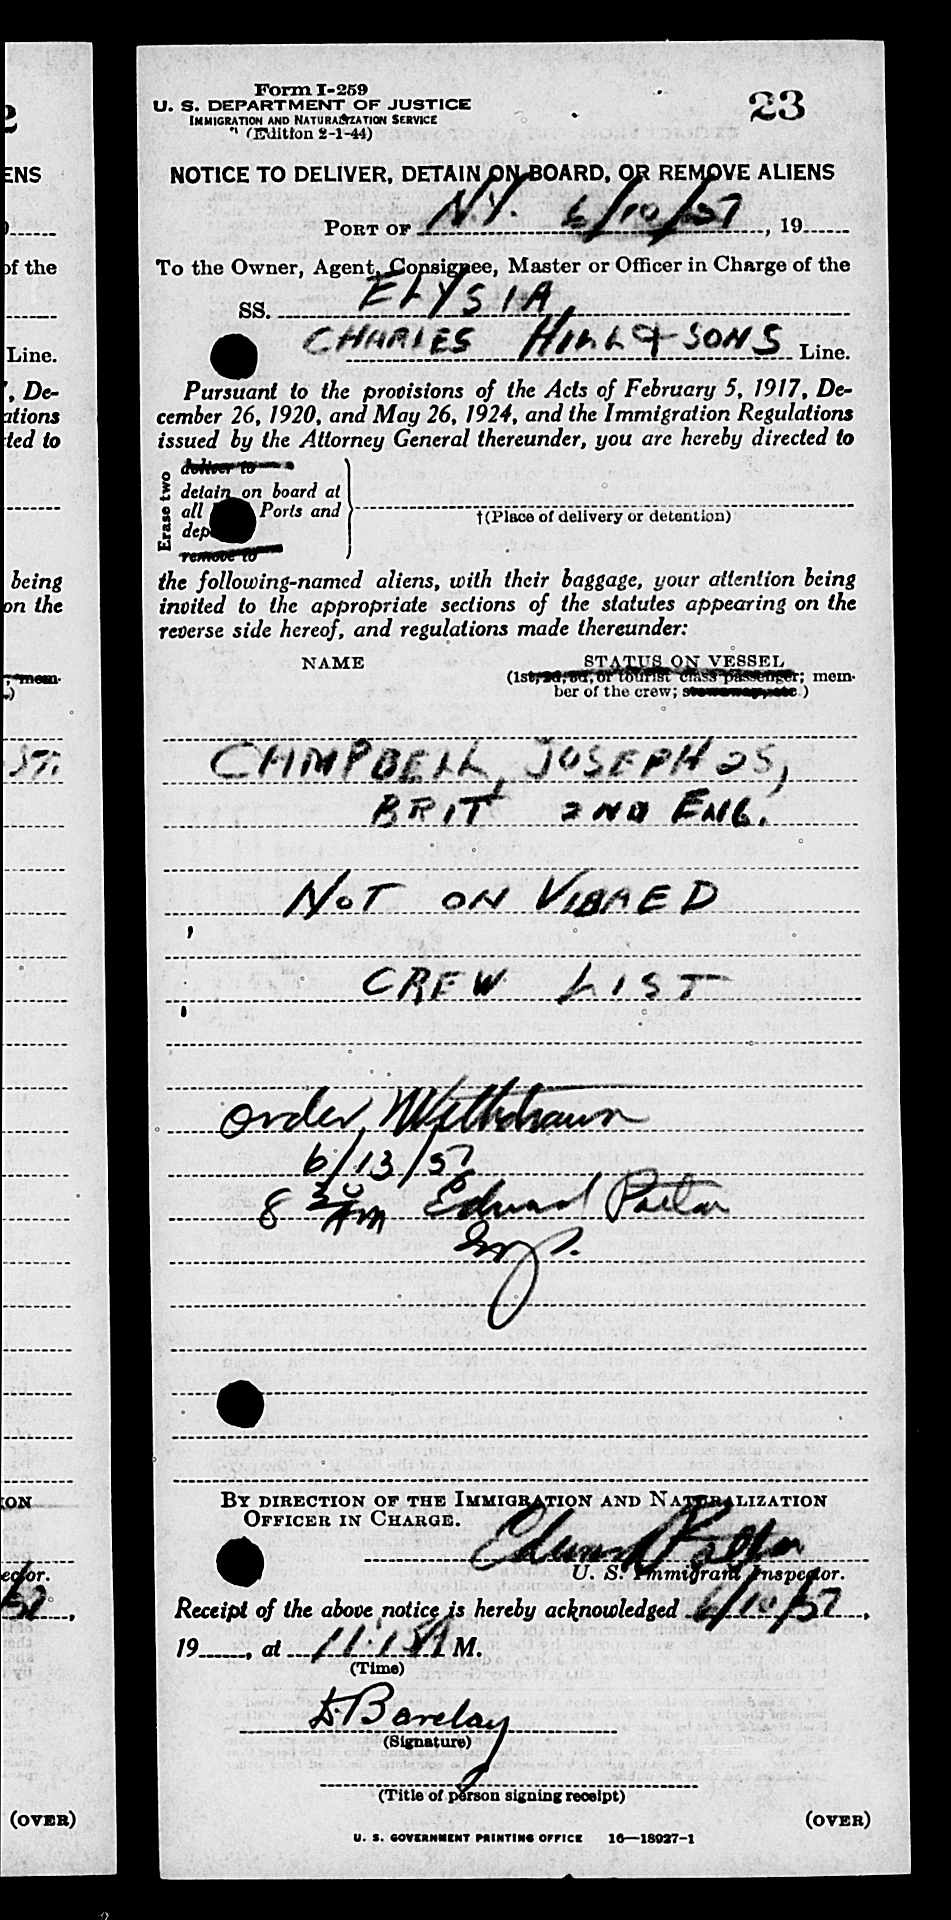 Form I-259
U. S. DEPARTMENT OF JUSTICE
IMMIGRATION AND NATURALIZATION SERVICE
(Edition 2-1-44)
23
NOTICE TO DELIVER, DETAIN ON BOARD, OR REMOVE ALIENS
PORT OF N.Y. 6/10/57, 19
To the Owner, Agent, Consignee, Master or Officer in Charge of the
SS. ELYSIA
CHARLES HILL & SONS Line.
Pursuant to the provisions of the Acts of February 5, 1917, De-
cember 26, 1920, and May 26, 1924, and the Immigration Regulations
issued by the Attorney General thereunder, you are hereby directed to
Erase two
deliver to
detain on board at
all Ports and
dep
remove to
†(Place of delivery or detention)
the following-named aliens, with their baggage, your attention being
invited to the appropriate sections of the statutes appearing on the
reverse side hereof, and regulations made thereunder:
NAME
STATUS ON VESSEL
(1st, 2d, 3d, or tourist class passenger; mem-
ber of the crew; stowaway, etc.)
CAMPBELL, JOSEPH 25,
BRIT 2ND ENG.
NOT ON VISAED
CREW LIST
order Withdrawn
6/13/57
8 30 AM Edward
BY DIRECTION OF THE IMMIGRATION AND NATURALIZATION
OFFICER IN CHARGE.
Edward
U. S. Immigrant Inspector.
Receipt of the above notice is hereby acknowledged 6/10/57,
19, at 11:15A M.
(Time)
D. Barclay
(Signature)
(Title of person signing receipt)
(OVER)
U. S. GOVERNMENT PRINTING OFFICE 16—18927-1
2
ENS
of the
Line.
, De-
ations
ted to
being
on the
mem-
ector.
(OVER)